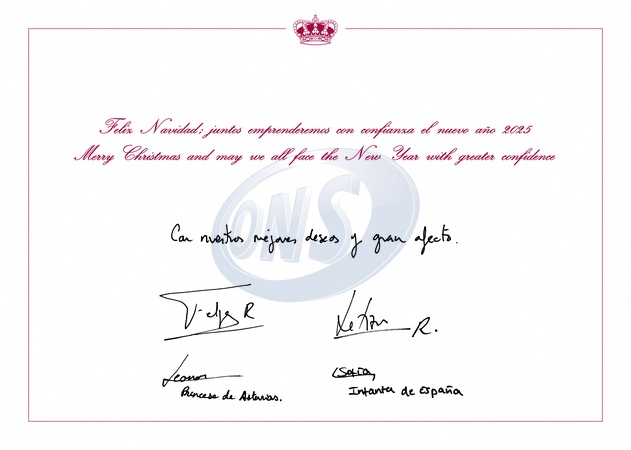 Feliz Navidad; juntos emprenderemos con confianza el nuevo año 2025
Merry Christmas and may we all face the New Year with greater confidence
ONS
Con nuestros mejores deseos y gran afecto.
Felipe R
Letizia R.
Leonor
Princesa de Asturias.
Sofía,
Infanta de España